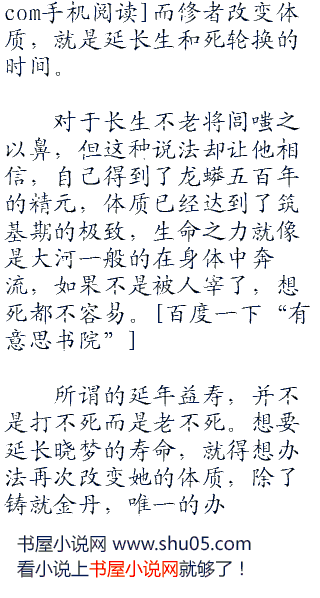 com手机阅读]而修者改变体
质，就是延长生和死轮换的
时间。
对于长生不老将闾嗤之
以鼻，但这种说法却让他相
信，自己得到了龙蟒五百年
的精元，体质已经达到了筑
基期的极致，生命之力就像
是大河一般的在身体中奔
流，如果不是被人宰了，想
死都不容易。[百度一下“有
意思书院”]
所谓的延年益寿，并不
是打不死而是老不死。想要
延长晓梦的寿命，就得想办
法再次改变她的体质，除了
铸就金丹，唯一的办
书屋小说网 www.shu05.com
看小说上书屋小说网就够了！